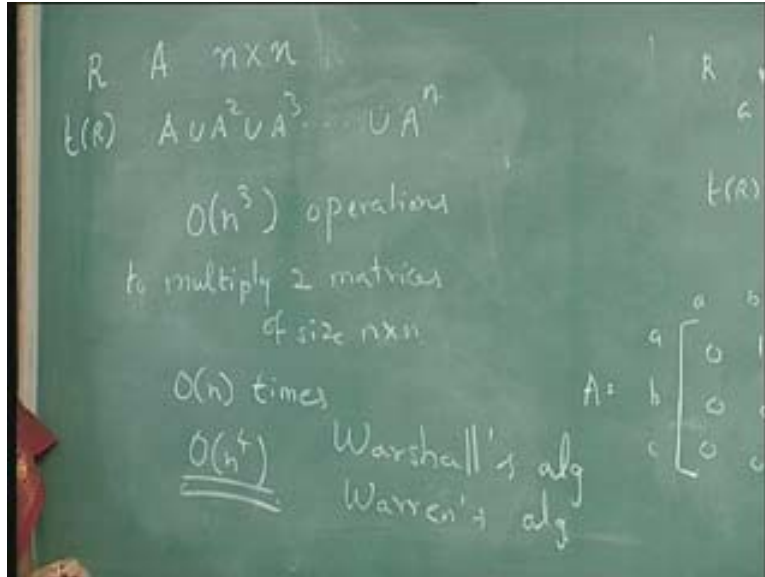 R A n×n
t(R) A ∪ A² ∪ A³ .... ∪ Aⁿ
O(n³) operations
to multiply 2 matrices
of size n×n
O(n) times
O(n⁴) Warshall's alg
Warren's alg
R
a
t(R)
a b
a [ 0 1
A = b 0
c 0